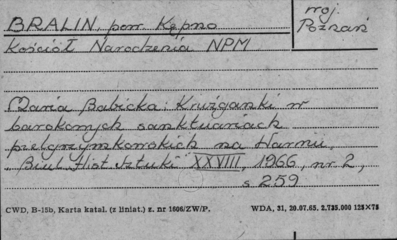 BRALIN, pow. Kępno
woj. Poznań
Kościół Narodzenia NPM
Maria Babicka: Krużganki w
barokowych sanktuariach
pielgrzymkowskich na Warmii,
"Biul. Hist. Sztuki" XXVIII, 1966, nr 2,
s. 259
CWD, B-15b, Karta katal. (z liniat.) z. nr 1606/ZW/P.
WDA, 31, 20.07.65. 2.735.000 125×75